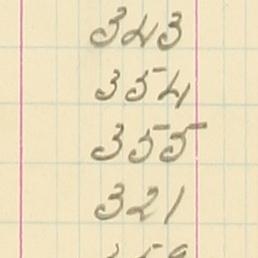 343
354
355
321